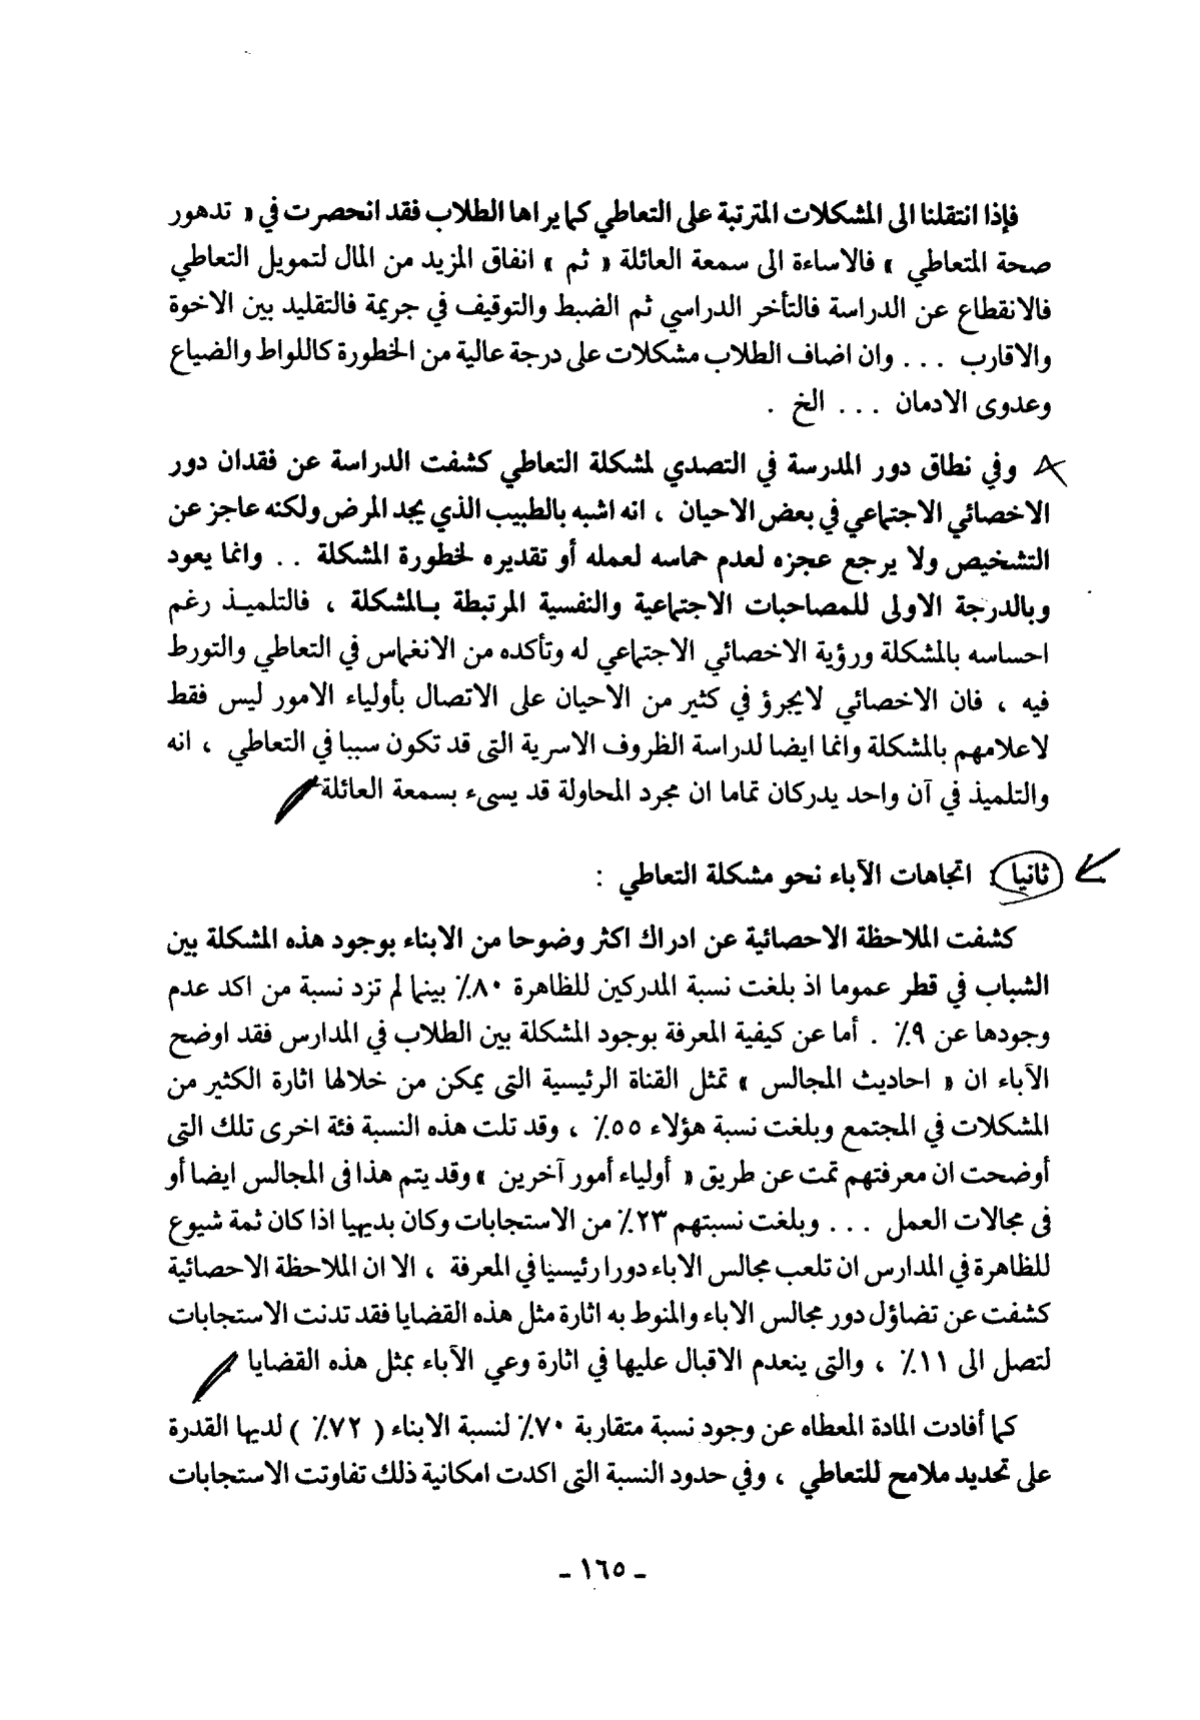 فإذا انتقلنا الى المشكلات المترتبة على التعاطي كما يراها الطلاب فقد انحصرت في « تدهور
صحة المتعاطي » فالاساءة الى سمعة العائلة « ثم » انفاق المزيد من المال لتمويل التعاطي
فالانقطاع عن الدراسة فالتأخر الدراسي ثم الضبط والتوقيف في جريمة فالتقليد بين الاخوة
والاقارب . . . وان اضاف الطلاب مشكلات على درجة عالية من الخطورة كاللواط والضياع
وعدوى الادمان . . . الخ .
وفي نطاق دور المدرسة في التصدي لمشكلة التعاطي كشفت الدراسة عن فقدان دور
الاخصائي الاجتماعي في بعض الاحيان ، انه اشبه بالطبيب الذي يجد المرض ولكنه عاجز عن
التشخيص ولا يرجع عجزه لعدم حماسه لعمله أو تقديره لخطورة المشكلة . . وانما يعود
وبالدرجة الاولى للمصاحبات الاجتماعية والنفسية المرتبطة بالمشكلة ، فالتلميذ رغم
احساسه بالمشكلة ورؤية الاخصائي الاجتماعي له وتأكده من الانغماس في التعاطي والتورط
فيه ، فان الاخصائي لايجرؤ في كثير من الاحيان على الاتصال بأولياء الامور ليس فقط
لاعلامهم بالمشكلة وانما ايضا لدراسة الظروف الاسرية التى قد تكون سببا في التعاطي ، انه
والتلميذ في آن واحد يدركان تماما ان مجرد المحاولة قد يسىء بسمعة العائلة
ثانيا : اتجاهات الآباء نحو مشكلة التعاطي :
كشفت الملاحظة الاحصائية عن ادراك اكثر وضوحا من الابناء بوجود هذه المشكلة بين
الشباب في قطر عموما اذ بلغت نسبة المدركين للظاهرة ٨٠٪ بينما لم تزد نسبة من اكد عدم
وجودها عن ٩٪ . أما عن كيفية المعرفة بوجود المشكلة بين الطلاب في المدارس فقد اوضح
الآباء ان « احاديث المجالس » تمثل القناة الرئيسية التى يمكن من خلالها اثارة الكثير من
المشكلات في المجتمع وبلغت نسبة هؤلاء ٥٥٪ ، وقد تلت هذه النسبة فئة اخرى تلك التى
أوضحت ان معرفتهم تمت عن طريق « أولياء أمور آخرين » وقد يتم هذا فى المجالس ايضا أو
فى مجالات العمل . . . وبلغت نسبتهم ٢٣٪ من الاستجابات وكان بديهيا اذا كان ثمة شيوع
للظاهرة في المدارس ان تلعب مجالس الاباء دورا رئيسيا في المعرفة ، الا ان الملاحظة الاحصائية
كشفت عن تضاؤل دور مجالس الاباء والمنوط به اثارة مثل هذه القضايا فقد تدنت الاستجابات
لتصل الى ١١٪ ، والتى ينعدم الاقبال عليها في اثارة وعي الآباء بمثل هذه القضايا
كما أفادت المادة المعطاه عن وجود نسبة متقاربة ٧٠٪ لنسبة الابناء ( ٧٢٪ ) لديها القدرة
على تحديد ملامح للتعاطي ، وفي حدود النسبة التى اكدت امكانية ذلك تفاوتت الاستجابات
ـ ١٦٥ ـ